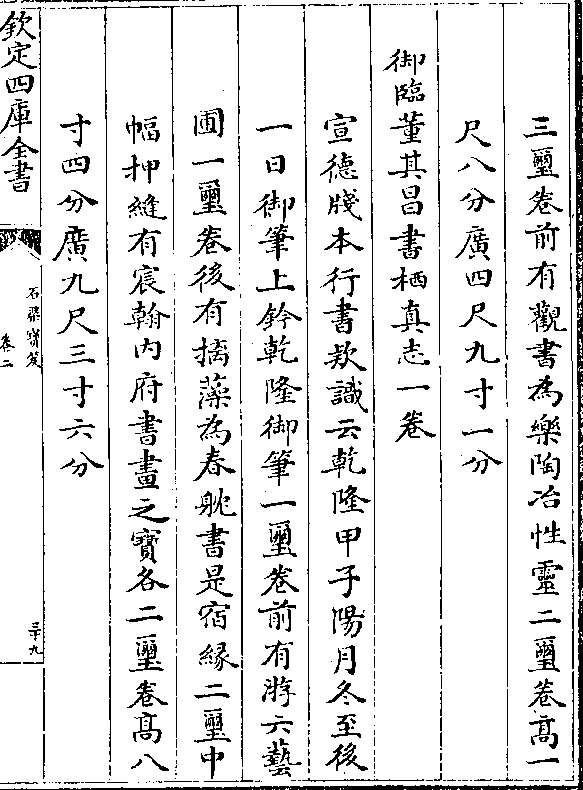 三璽卷前有觀書為樂陶冶性靈二璽卷髙一
尺八分廣四尺九寸一分
御臨董其昌書栖真志一卷
宣德牋本行書款識云乾隆甲子陽月冬至後
一日御筆上鈐乾隆御筆一璽卷前有游六藝
圃一璽卷後有摛藻為春眈書是宿縁二璽中
幅押縫有宸翰内府書畫之寳各二璽卷髙八
寸四分廣九尺三寸六分
欽定四庫全書
石渠寳笈
卷二
三十九